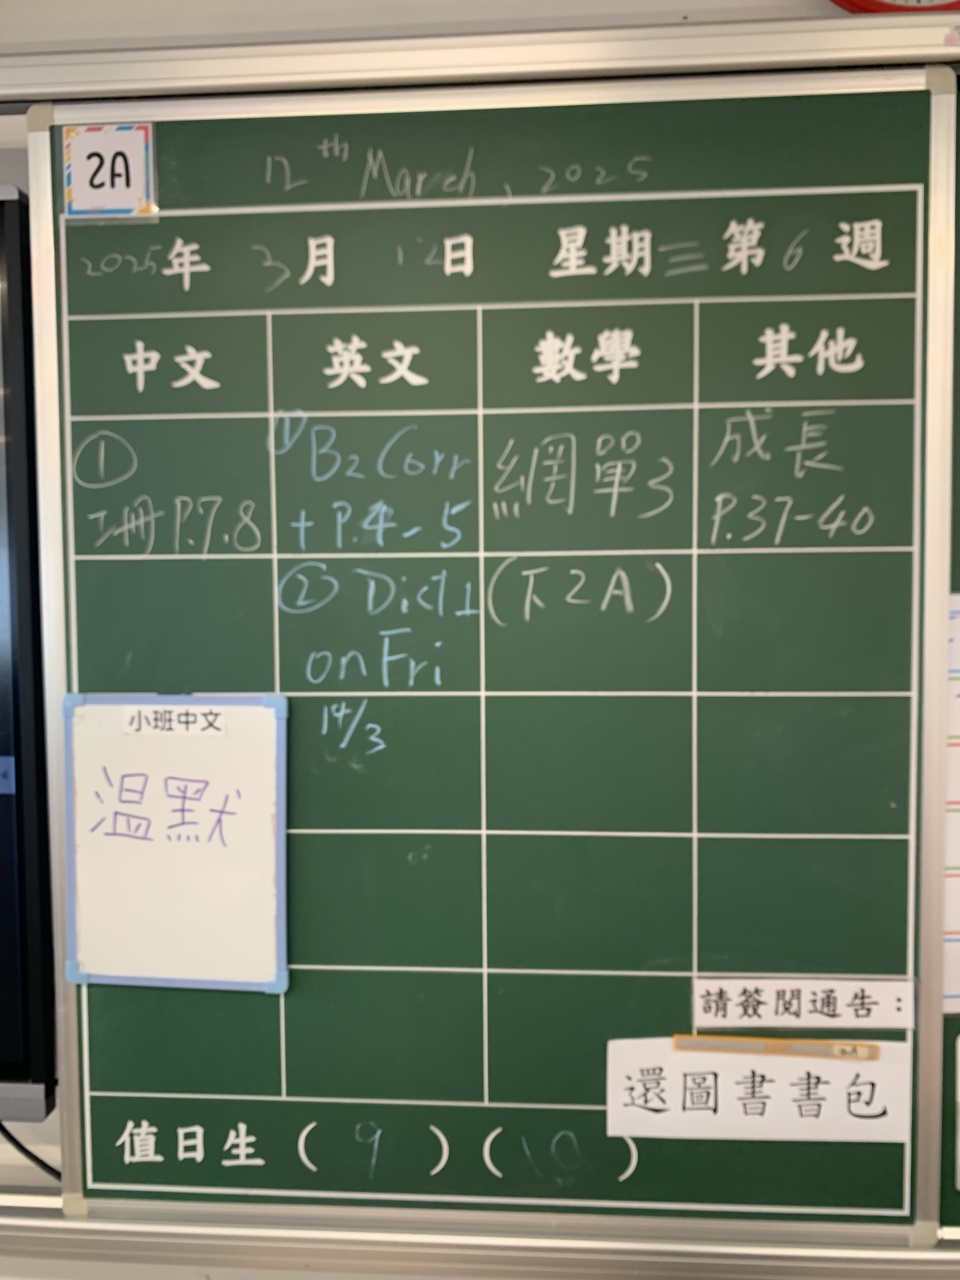 2A
12th March, 2025
2025年 3月 12日 星期三 第6週
中文 英文 數學 其他
①
工冊 P.7.8
① B2 Corr
+ P.4-5
② Dict1
on Fri
14/3
網單3
(下2A)
成長
P.37-40
小班中文
溫默
請簽閱通告：
還圖書書包
值日生 ( 9 ) ( 10 )